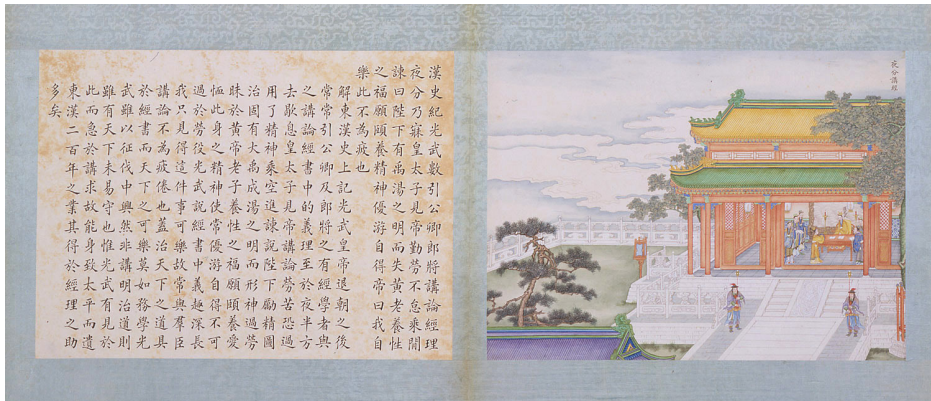 夜分講經
漢史紀光武數引公卿郎將講論經理
夜分乃寐皇太子見帝勤勞不怠乘閒
諫曰陛下有禹湯之明而失黃老養性
之福願頤養精神優游自得帝曰我自
樂此不為疲也
解東漢史上記光武皇帝退朝之後
常常引公卿及郎將之有經學者與
之講論經書中的義理至於夜半方
去歇息皇太子見帝講論勞苦恐過
用了精神乘空進諫說陛下勵精圖
治固有大禹成湯之明而形神過勞
昧於黃帝老子養性之福願頤養愛
恤此身之精神使常優游自得不可
過於勞役光武說經書中義趣深長
我只見得這件事可樂故常與羣臣
講論不為疲倦也蓋治天下之道具
於經書而天下之可樂莫如務學光
武雖以征伐中興然非講明治道則
雖有天下未易守也惟光武有見於
此而急於講求故能身致太平而遺
東漢二百年之業其得於經理之助
多矣